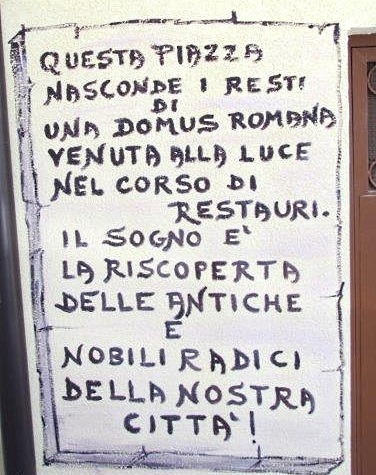 QUESTA PIAZZA
NASCONDE I RESTI
DI
UNA DOMUS ROMANA
VENUTA ALLA LUCE
NEL CORSO DI
RESTAURI.
IL SOGNO E'
LA RISCOPERTA
DELLE ANTICHE
E
NOBILI RADICI
DELLA NOSTRA
CITTA'!